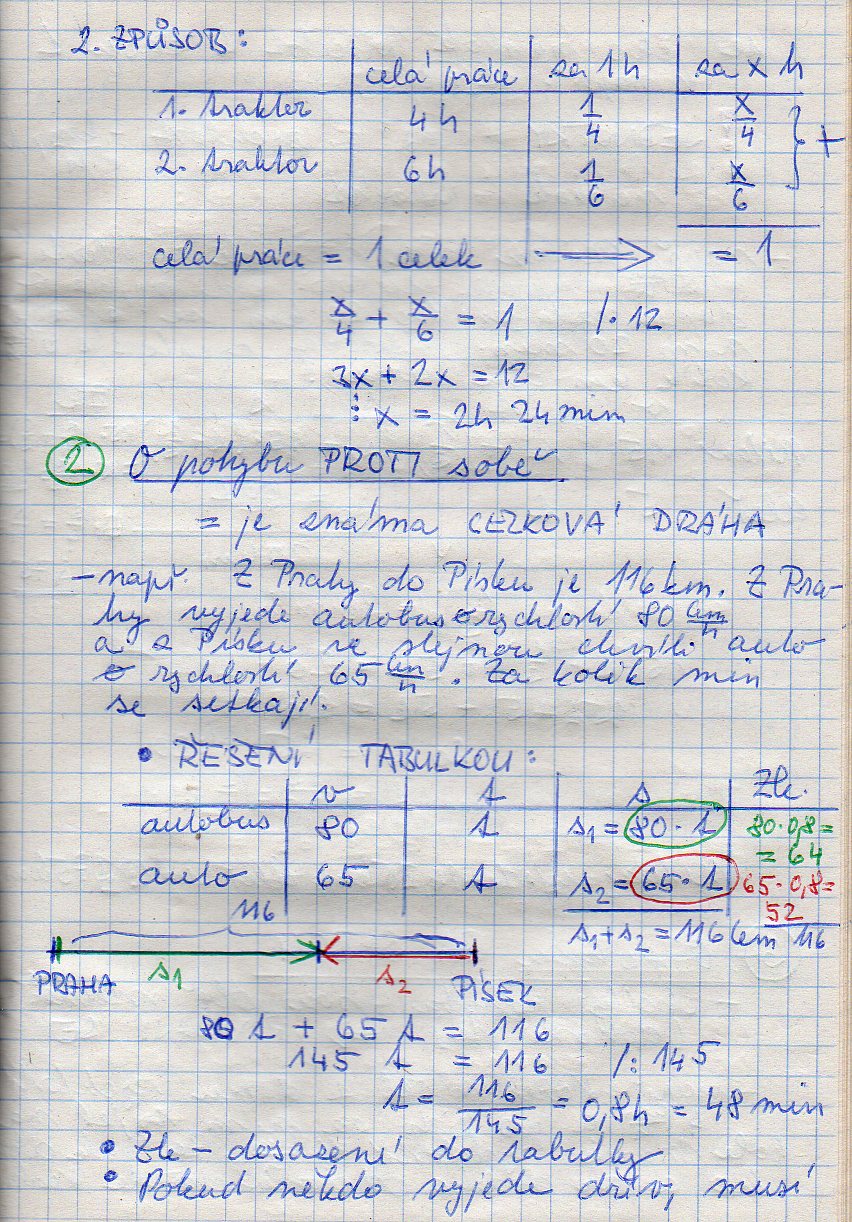 2. ZPŮSOB:
celá práce | za 1h | za x h
1. traktor | 4h | 1/4 | x/4
2. traktor | 6h | 1/6 | x/6 } +
celá práce = 1 celek ⟹ = 1
x/4 + x/6 = 1 /· 12
3x + 2x = 12
⋮ x = 2h 24 min
2 O pohybu PROTI sobě
= je známa CELKOVÁ DRÁHA
- např. Z Prahy do Písku je 116 km. Z Pra-
hy vyjede autobus rychlostí 80 km/h
a z Písku ve stejnou chvíli auto
rychlostí 65 km/h. Za kolik min
se setkají.
• ŘEŠENÍ TABULKOU:
v | t | s | Zk.
autobus | 80 | t | s1 = 80 · t | 80·0,8 =
= 64
auto | 65 | t | s2 = 65 · t | 65·0,8 =
52
116
s1 + s2 = 116 km 116
PRAHA s1 s2 PÍSEK
80 t + 65 t = 116
145 t = 116 /: 145
t = 116/145 = 0,8h = 48 min
• Zk - dosazení do tabulky
• Pokud někdo vyjede dřív, musí